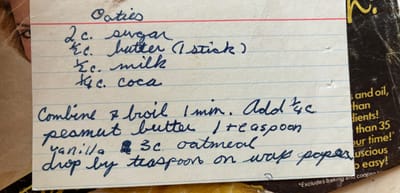 Oaties
2 c. sugar
½ c. butter (1 stick)
½ c. milk
¼ c. coca
Combine & broil 1 min. Add ¼ c
peanut butter 1 teaspoon
vanilla 3 c. oatmeal
drop by teaspoon on wax paper
n.
and oil,
than
dients!
than 35
ur time!
uscious
easy!
*Excludes baking and